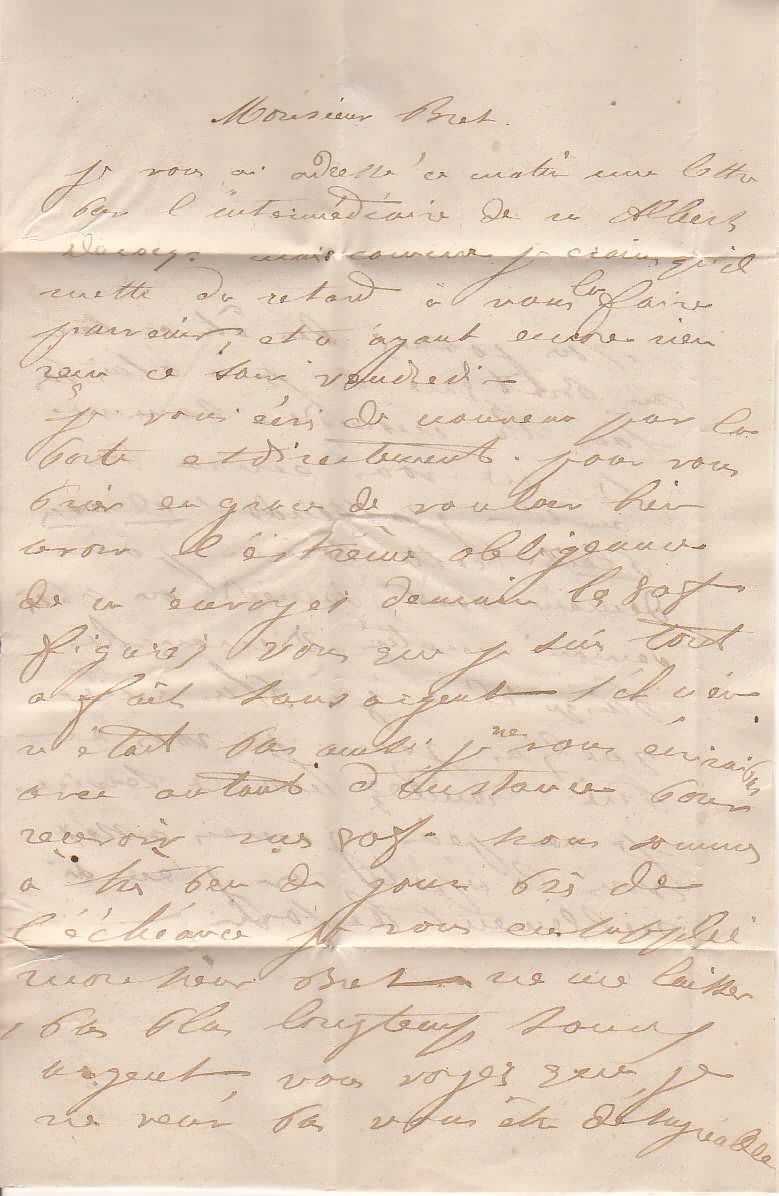 Monsieur Bret.
je vous ai adressé ce matin une lettre
par l'intermédiaire de m Albert
mais comme je crains qu'il
mette du retard à vous la faire
parvenir, et n'ayant encore rien
reçu ce soir vendredi –
je vous écris de nouveau par la
poste et directement. pour vous
prier en grace de vouloir bien
avoir l'éxtrême obligeance
de m'envoyer demain les 80f
figurez vous que je suis tout
a fait sans argent s'il n'en
n'était pas ainsi je ne vous écrirai pas
avec autant d'instance pour
recevoir mes 80f. nous sommes
à très peu de jours près de
l'échéance je vous en supplie
monsieur Bret ne me laisser
pas plus longtemps sans
argent vous voyez que je
ne veux pas vous être désagréable